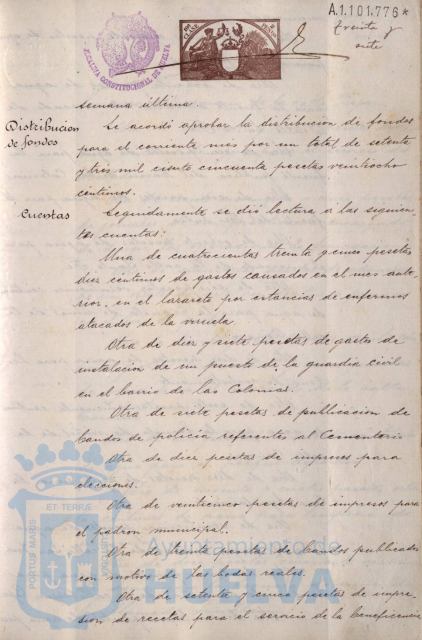 A.1.101.776*
treinta y
siete
ALCALDIA CONSTITUCIONAL DE HUELVA
semana última.
Distribucion
de fondos
Se acordó aprobar la distribucion de fondos
para el corriente mes por un total de setenta
y tres mil ciento cincuenta pesetas veintiocho
céntimos.
Cuentas
Seguidamente se dió lectura á las siguien-
tes cuentas:
Una de cuatrocientas treinta y cinco pesetas
diez céntimos de gastos causados en el mes ante-
rior, en el lazareto por estancias de enfermos
atacados de la viruela.
Otra de diez y siete pesetas de gastos de
instalacion de un puesto de la guardia civil
en el barrio de las Colonias.
Otra de siete pesetas de publicacion de
bandos de policia referentes al Cementerio
Otra de diez pesetas de impresos para
elecciones.
Otra de veinticinco pesetas de impresos para
el padron municipal.
Otra de treinta pesetas de bandos publicados
con motivo de las bodas reales.
Otra de setenta y cinco pesetas de impre-
sion de recetas para el servicio de la beneficencia
PORTUS MARIS ET TERRÆ
Ayuntamiento de
HUELVA